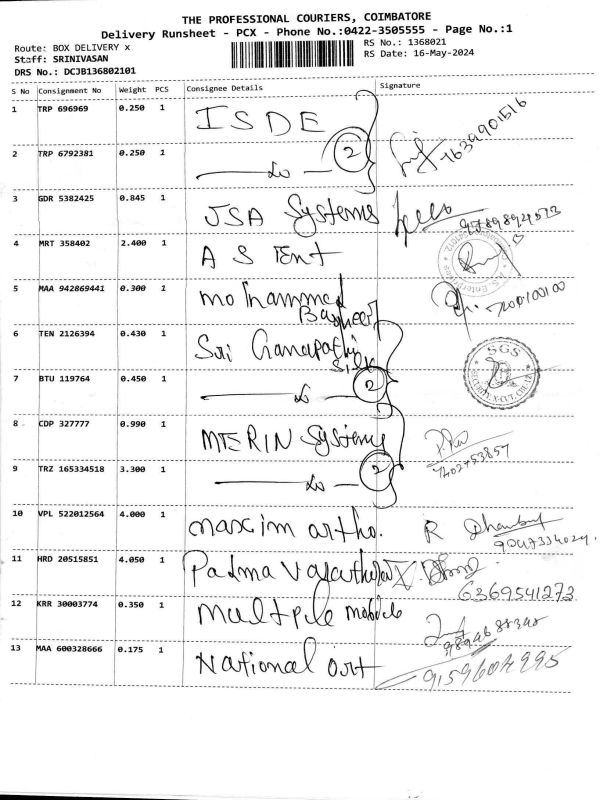 THE PROFESSIONAL COURIERS, COIMBATORE
Delivery Runsheet - PCX - Phone No.:0422-3505555 - Page No.:1
Route: BOX DELIVERY x
Staff: SRINIVASAN
DRS No.: DCJB136802101
RS No.: 1368021
RS Date: 16-May-2024
S No Consignment No Weight PCS Consignee Details Signature
1 TRP 696969 0.250 1 ISDE
2 TRP 6792381 0.250 1 2 7639901516
3 GDR 5382425 0.845 1 JSA Systems
4 MRT 358402 2.400 1 A S Ent
5 MAA 942869441 0.300 1 Mohammed Basheer
6 TEN 2126394 0.430 1 Sri Ganapathi Silk
7 BTU 119764 0.450 1 2 SGS
8 CDP 327777 0.990 1 MERIN Systems
7402453857
9 TRZ 165334518 3.300 1 2
10 VPL 522012564 4.000 1 maxim ortho. R
11 HRD 20515851 4.050 1 Padma
6369541273
12 KRR 30003774 0.350 1 multple mobile
13 MAA 600328666 0.175 1 National ort 9159604995